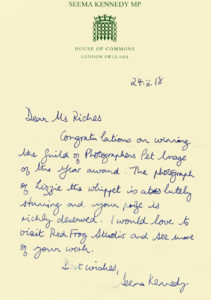 SEEMA KENNEDY MP
HOUSE OF COMMONS
LONDON SW1A 0AA
24.ii.18
Dear Ms Riches
Congratulations on winning
the Guild of Photographers Pet Image
of the Year award. The photograph
of Lizzie the whippet is absolutely
stunning and your prize is
richly deserved. I would love to
visit Red Frog Studio and see more
of your work.
Best wishes,
Seema Kennedy